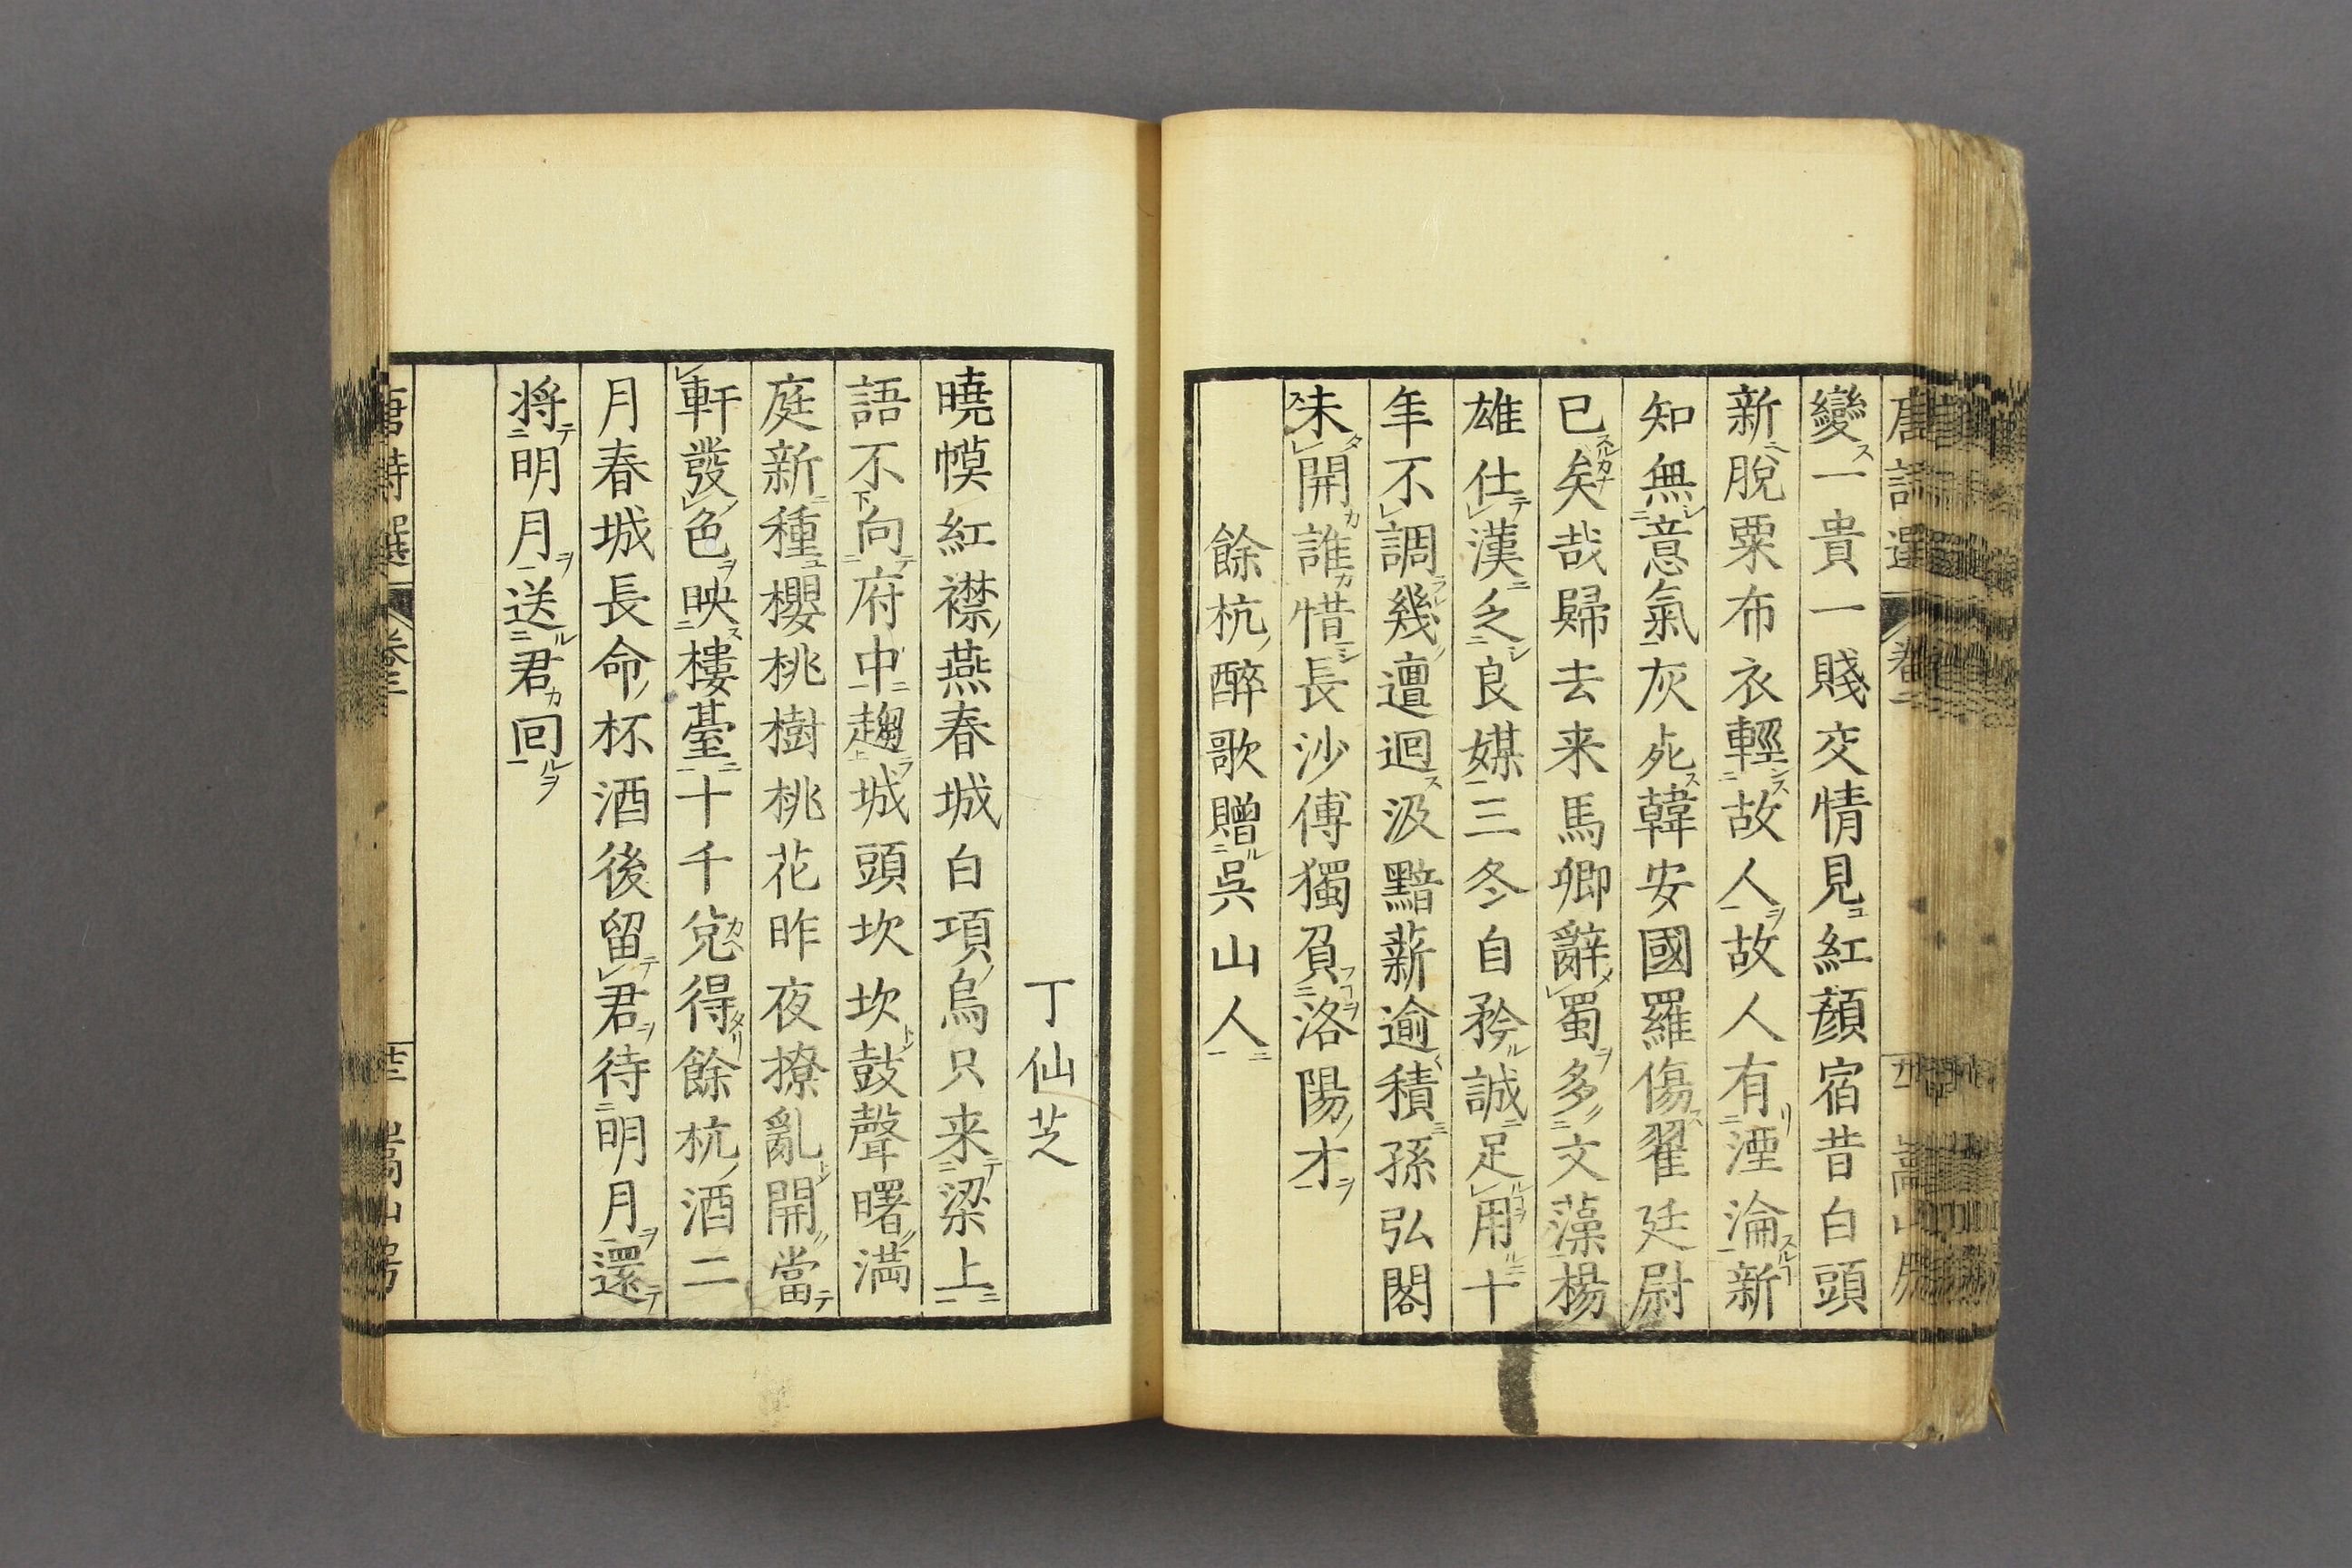 唐詩選 卷二
變一貴一賤交情見紅顔宿昔白頭
新脫粟布衣輕故人故人有湮淪新
知無意氣灰死韓安國羅傷翟廷尉
已矣哉歸去来馬卿辭蜀多文藻楊
雄仕漢乏良媒三冬自矜誠足用十
年不調幾邅迴汲黯薪逾積孫弘閣
未開誰惜長沙傅獨負洛陽才
餘杭醉歌贈呉山人
丁仙芝
曉幙紅襟燕春城白項烏只来梁上
語不向府中趨城頭坎坎鼓聲曙満
庭新種櫻桃樹桃花昨夜撩亂開當
軒發色映樓臺十千兌得餘杭酒二
月春城長命杯酒後留君待明月還
将明月送君回
唐詩選 卷二 嵩山房